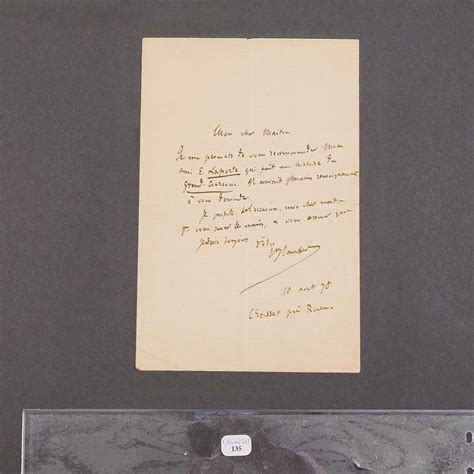 Mon cher Maître
Je me permets de vous recommander mon
ami E. Laporte qui fait une histoire du
Grand-
Il aurait plusieurs renseignements
à vous demander.
Je profite de l'occasion, mon cher maître
pr vous serrer les mains, & vous assurer que
je suis toujours Votre
Gve Flaubert
10 août 78
Croisset près Rouen.
135